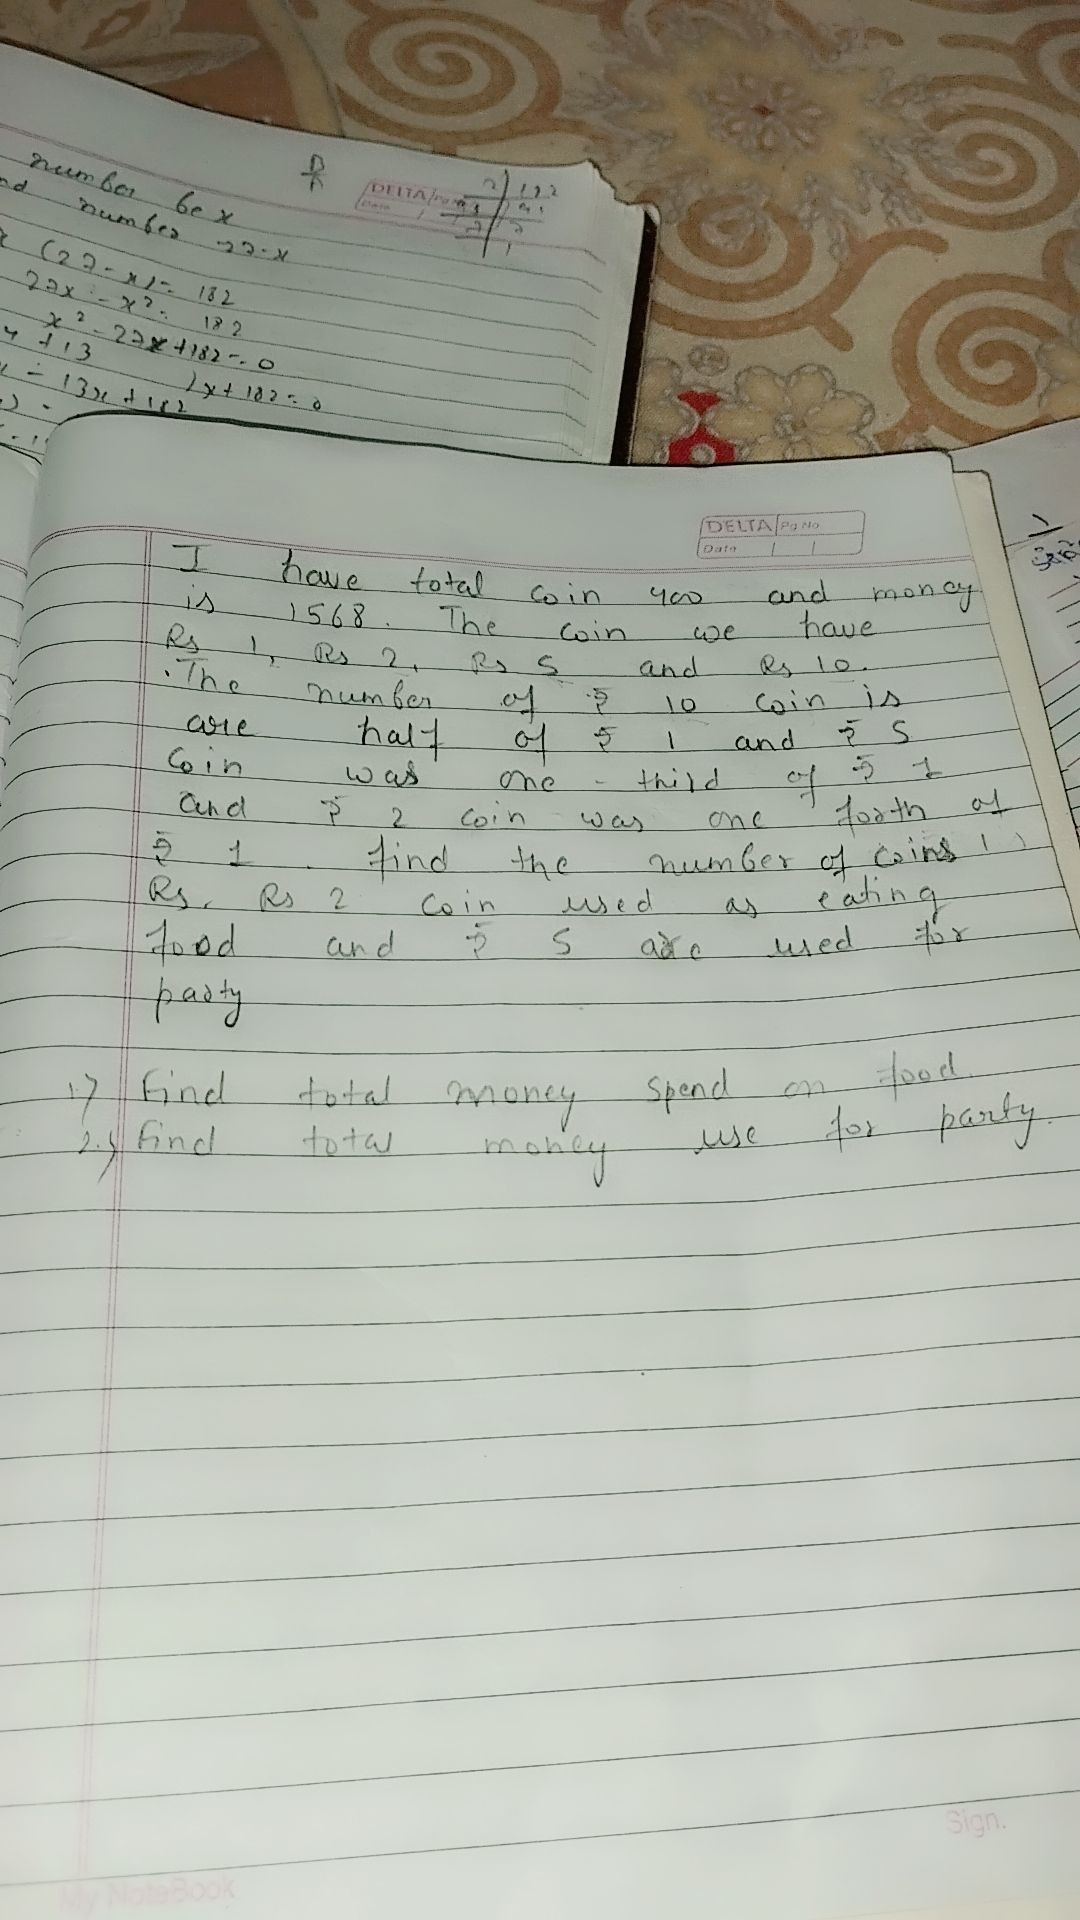 number be x
number 27-x
(27-x)= 182
27x-x²= 182
x²-27x+182=0
+13
)x+182=0
-13x+182
DELTA
Date
2 182
DELTA Pg No
Date
I have total coin 400 and money
is 1568. The coin we have
Rs 1, Rs 2, Rs 5 and Rs 10.
.The number of ₹ 10 coin is
are half of ₹ 1 and ₹ 5
Coin was one-third of ₹ 1
and ₹ 2 coin was one forth of
₹ 1. find the number of coins
Rs. Rs 2 coin used as eating
food and ₹ 5 are used for
party
1.) Find total money spend on food.
2.) Find total money use for party.
Sign.
My NoteBook